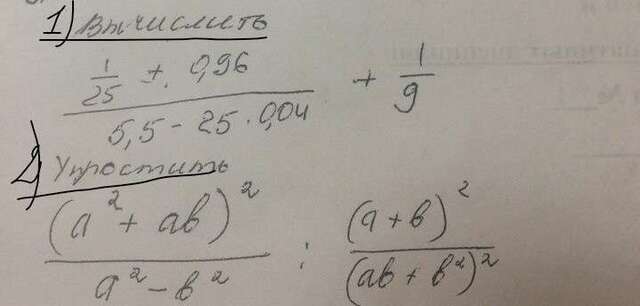 1) Вычислить
(1/25 + 0,96)/(5,5 - 25 · 0,04) + 1/9
2) Упростить
(a² + ab)²/(a² - b²) : (a + b)²/(ab + b²)²